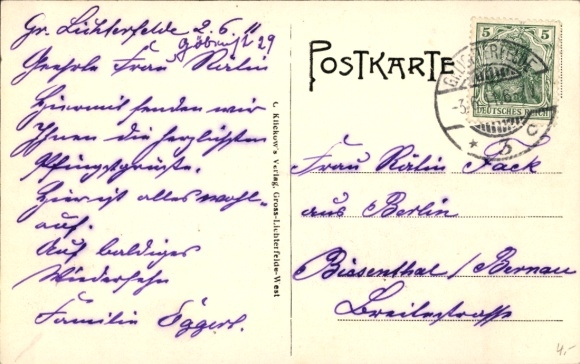 Gr. Lichterfelde 2.6.11
29
Geehrte Frau Rätin
Hiermit senden wir
Ihnen die herzlichsten
Pfingstgrüsse.
Hier ist alles wohl-
auf.
Auf baldiges
Wiedersehn
Familie Eggert.
C. Klickow's Verlag, Gross-Lichterfelde-West
POSTKARTE
5 5
DEUTSCHES REICH
Frau Rätin Jack
aus Berlin
Biesenthal / Bernau
Breitestrasse
4,-